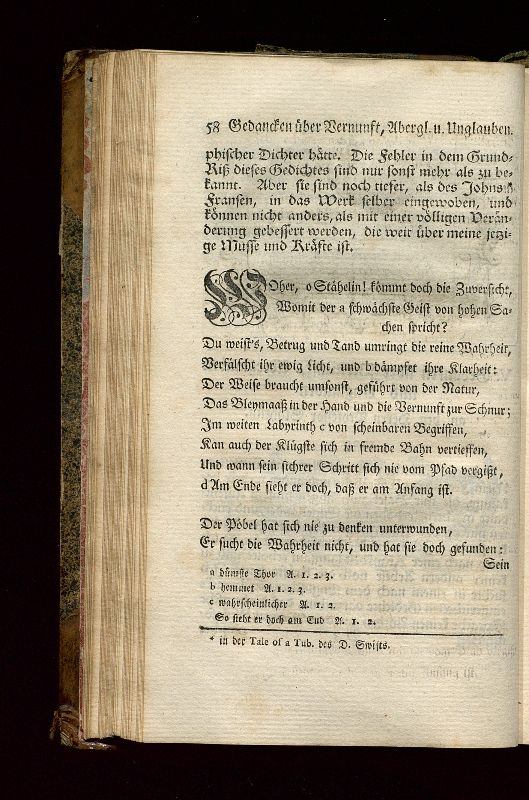 58 Gedancken über Vernunft, Abergl. u. Unglauben.
phischer Dichter hätte. Die Fehler in dem Grund-
Riß dieses Gedichtes sind nur sonst mehr als zu be-
kannt. Aber sie sind noch tiefer, als des Johns *
Fransen, in das Werk selber eingewoben, und
können nicht anders, als mit einer völligen Verän-
derung gebessert werden, die weit über meine jetzi-
ge Musse und Kräfte ist.
WOher, o Stähelin! kömmt doch die Zuversicht,
Womit der a schwächste Geist von hohen Sa-
chen spricht?
Du weist's, Betrug und Tand umringt die reine Wahrheit,
Verfälscht ihr ewig Licht, und b dämpfet ihre Klarheit:
Der Weise braucht umsonst, geführt von der Natur,
Das Bleymaaß in der Hand und die Vernunft zur Schnur;
Im weiten Labyrinth c von scheinbaren Begriffen,
Kan auch der Klügste sich in fremde Bahn vertieffen,
Und wann sein sichrer Schritt sich nie vom Pfad vergißt,
d Am Ende sieht er doch, daß er am Anfang ist.
Der Pöbel hat sich nie zu denken unterwunden,
Er sucht die Wahrheit nicht, und hat sie doch gefunden:
Sein
a dümste Thor A. 1. 2. 3.
b hemmet A. 1. 2. 3.
c wahrscheinlicher A. 1. 2.
So sieht er doch am End A. 1. 2.
* in der Tale of a Tub. des D. Swifts.